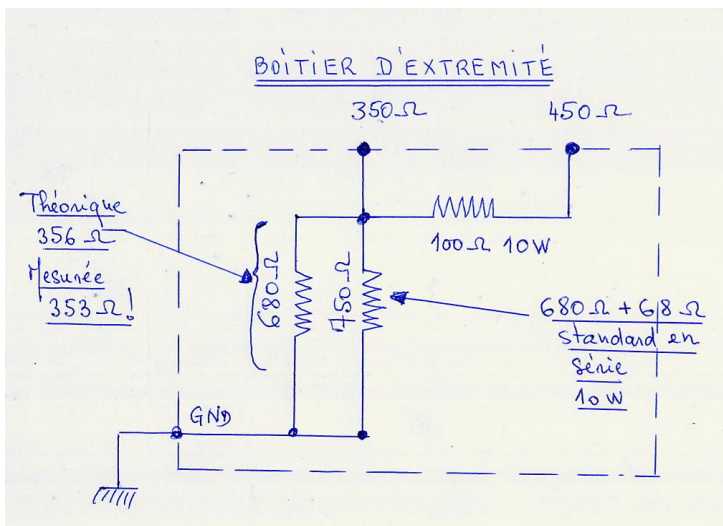 BOÎTIER D'EXTREMITÉ
350Ω
450Ω
Théorique
356 Ω
Mesurée
353 Ω!
680Ω
750Ω
100Ω 10W
680Ω + 68 Ω
standard en
Série
10W
GND